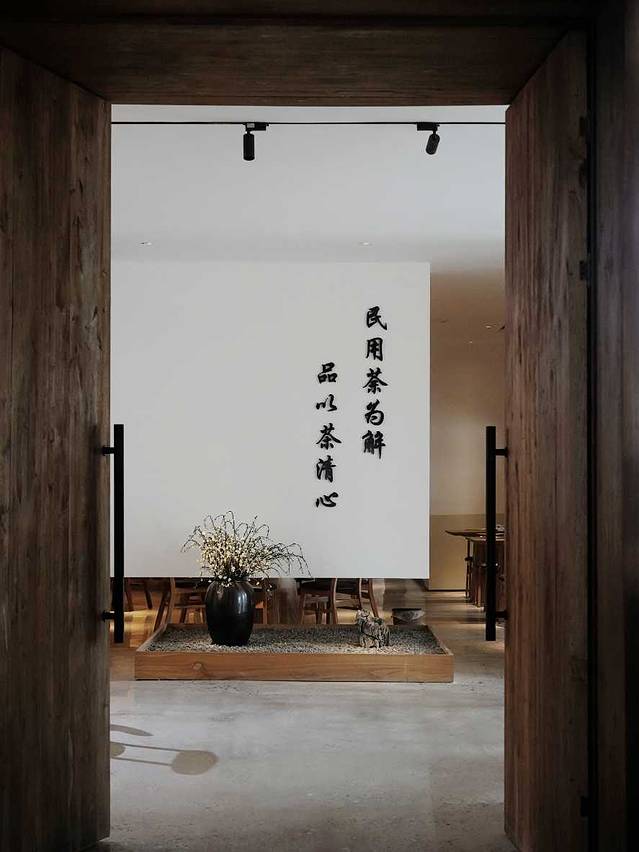 民用茶为解
品以茶清心